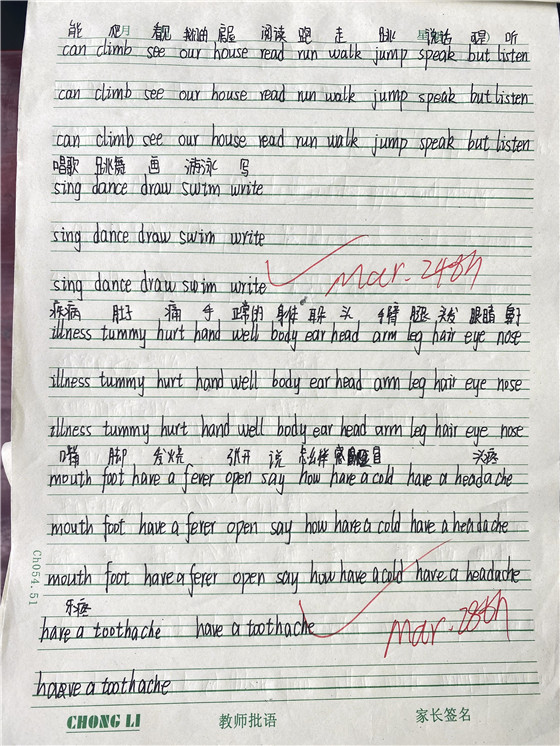 能 爬 看见 我们的 房屋 阅读 跑 走 跳 说话 听
can climb see our house read run walk jump speak but listen
can climb see our house read run walk jump speak but listen
can climb see our house read run walk jump speak but listen
唱歌 跳舞 画 游泳 写
sing dance draw swim write
sing dance draw swim write
sing dance draw swim write
Mar. 24th
疾病 肚子 痛 手 正常的 身体 耳朵 头 手臂 腿 头发 眼睛 鼻子
illness tummy hurt hand well body ear head arm leg hair eye nose
illness tummy hurt hand well body ear head arm leg hair eye nose
illness tummy hurt hand well body ear head arm leg hair eye nose
嘴 脚 发烧 张开 说 怎么样 头疼
mouth foot have a fever open say how have a cold have a headache
mouth foot have a fever open say how have a cold have a headache
mouth foot have a fever open say how have a cold have a headache
牙疼
have a toothache have a toothache
Mar. 28th
have a toothache
Ch054.51
CHONG LI 教师批语 家长签名